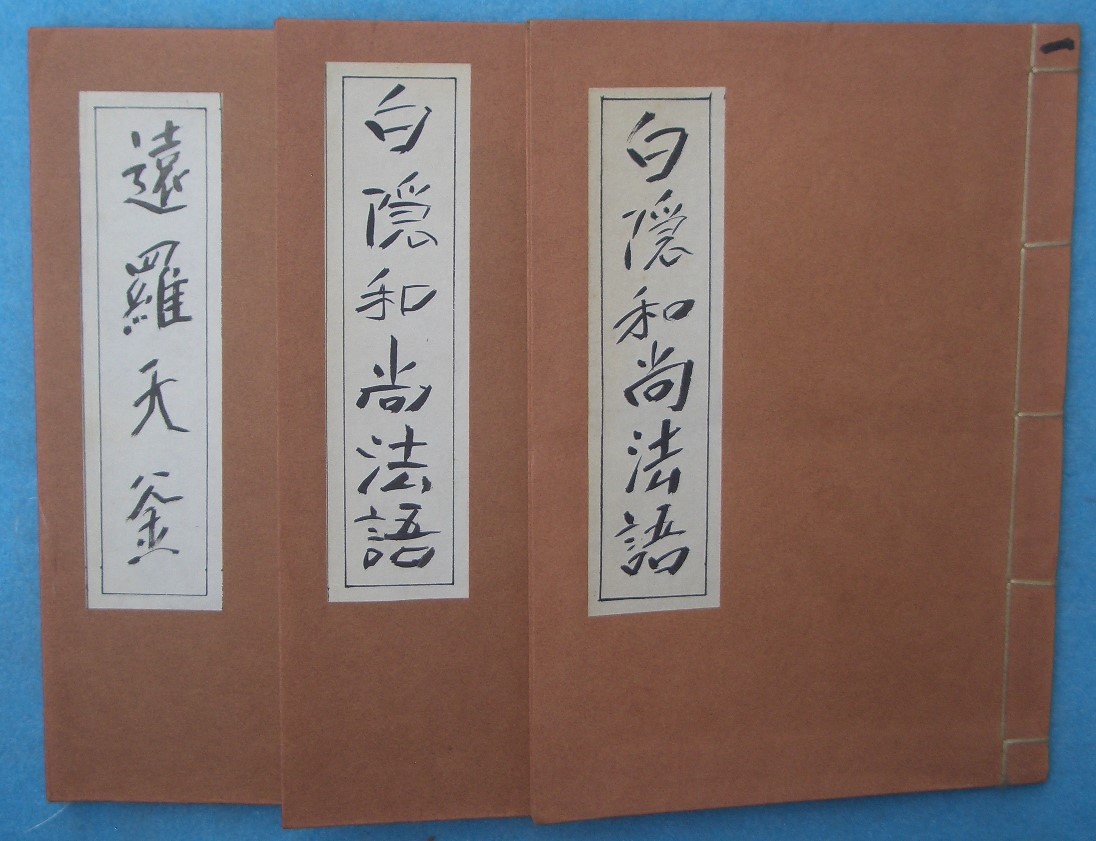 一
白隠和尚法語
白隠和尚法語
遠羅天釜